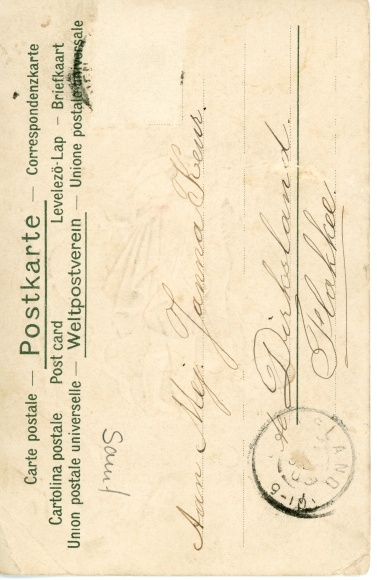 Carte postale — Postkarte — Correspondenzkarte
Cartolina postale Post card Levelező-Lap — Briefkaart
Union postale universelle — Weltpostverein — Unione postale universale
Aan Mej. Janna Keur.
Dirksland.
Flakkee.
LAND